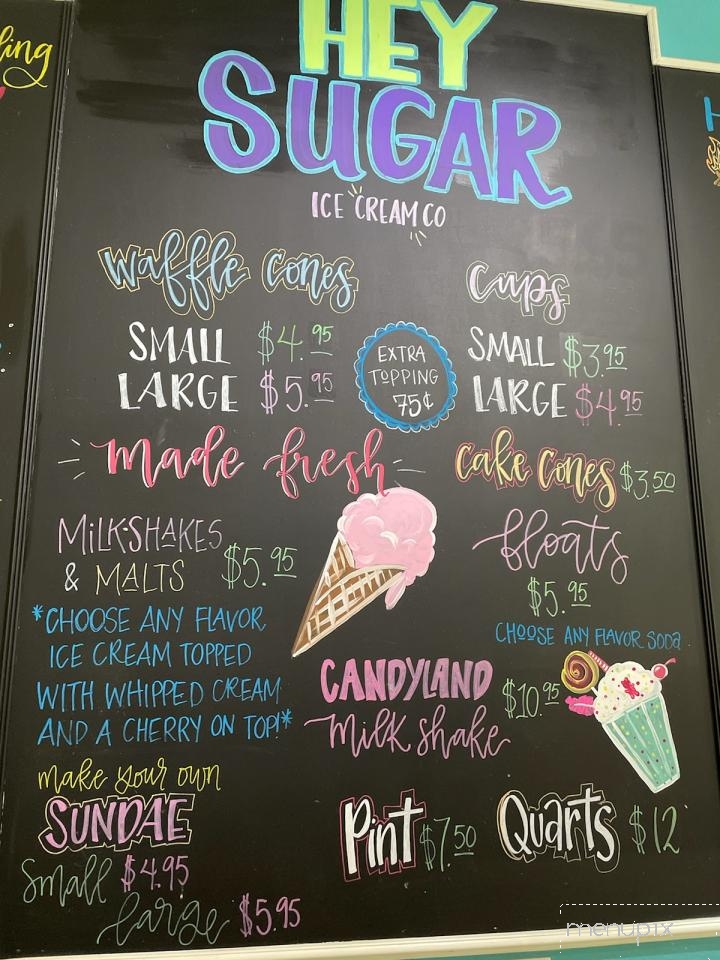 ling
HEY
SUGAR
ICE CREAM CO
waffle cones
SMALL $4.95
LARGE $5.95
EXTRA
TOPPING
75¢
cups
SMALL $3.95
LARGE $4.95
made fresh
cake cones $3.50
MILK-SHAKES
& MALTS $5.95
*CHOOSE ANY FLAVOR
ICE CREAM TOPPED
WITH WHIPPED CREAM
AND A CHERRY ON TOP!*
floats
$5.95
CHOOSE ANY FLAVOR SODA
CANDYLAND
Milk shake $10.95
make your own
SUNDAE
small $4.95
large $5.95
Pint $7.50
Quarts $12
menupix